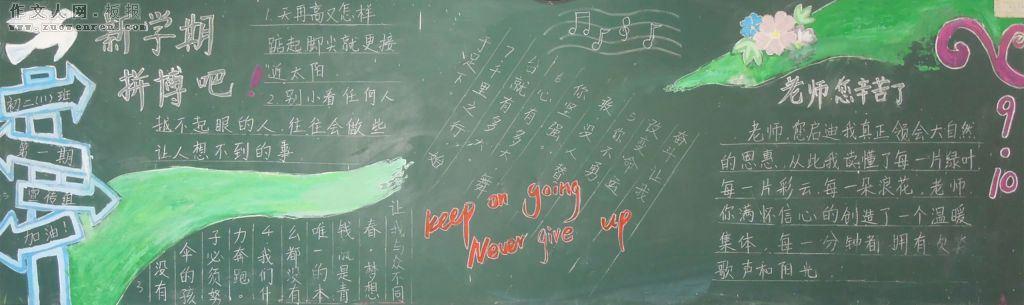 作文人网·板报
www.zuowenren.com
初二(11)班
第一期
宣传组
加油!
新学期
拼搏吧!
1.天再高又怎样
踮起脚尖就更接
近太阳
2.别小看任何人
越不起眼的人.往往会做些
让人想不到的事.
3没有
伞的孩
子必须努
力奔跑。
4我们什
么都没有
唯一的本
钱就是青
春。梦想
让我与众不同
奋斗让我
改变命运
5你不勇
你坚强。
6心有多大.舞
台就有多大.
7千里之行.始
于足下
keep on going
Never give up
老师您辛苦了
老师,您启迪我真正领会大自然
的恩惠.从此我读懂了每一片绿叶
每一片彩云.每一朵浪花.老师
你满怀信心的创造了一个温暖
集体.每一分钟都拥有欢笑
歌声和阳光.
9.10